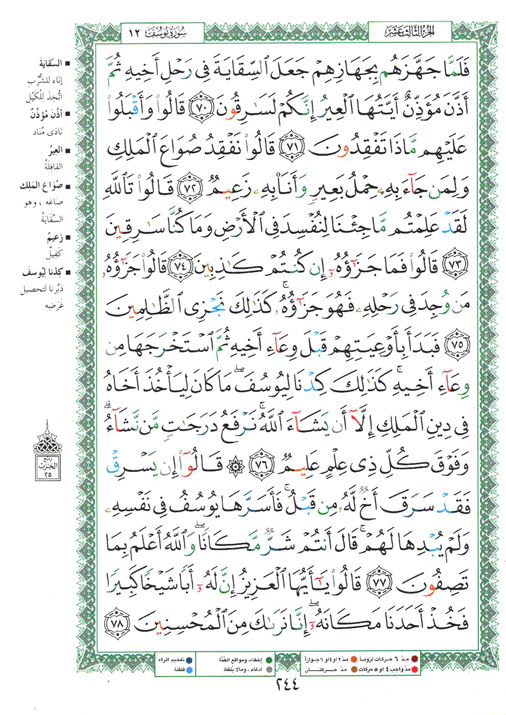 سُورَةُ يُوسُفَ ١٢
الجُزءُ الثَّالِثَ عَشَرَ
فَلَمَّا جَهَّزَهُم بِجَهَازِهِمْ جَعَلَ ٱلسِّقَايَةَ فِى رَحْلِ أَخِيهِ ثُمَّ
أَذَّنَ مُؤَذِّنٌ أَيَّتُهَا ٱلْعِيرُ إِنَّكُمْ لَسَٰرِقُونَ ٧٠ قَالُوا۟ وَأَقْبَلُوا۟
عَلَيْهِم مَّاذَا تَفْقِدُونَ ٧١ قَالُوا۟ نَفْقِدُ صُوَاعَ ٱلْمَلِكِ
وَلِمَن جَآءَ بِهِۦ حِمْلُ بَعِيرٍ وَأَنَا۠ بِهِۦ زَعِيمٌ ٧٢ قَالُوا۟ تَٱللَّهِ
لَقَدْ عَلِمْتُم مَّا جِئْنَا لِنُفْسِدَ فِى ٱلْأَرْضِ وَمَا كُنَّا سَٰرِقِينَ
٧٣ قَالُوا۟ فَمَا جَزَٰٓؤُهُۥٓ إِن كُنتُمْ كَٰذِبِينَ ٧٤ قَالُوا۟ جَزَٰٓؤُهُۥ
مَن وُجِدَ فِى رَحْلِهِۦ فَهُوَ جَزَٰٓؤُهُۥ ۚ كَذَٰلِكَ نَجْزِى ٱلظَّٰلِمِينَ
٧٥ فَبَدَأَ بِأَوْعِيَتِهِمْ قَبْلَ وِعَآءِ أَخِيهِ ثُمَّ ٱسْتَخْرَجَهَا مِن
وِعَآءِ أَخِيهِ ۚ كَذَٰلِكَ كِدْنَا لِيُوسُفَ ۖ مَا كَانَ لِيَأْخُذَ أَخَاهُ
فِى دِينِ ٱلْمَلِكِ إِلَّآ أَن يَشَآءَ ٱللَّهُ ۚ نَرْفَعُ دَرَجَٰتٍ مَّن نَّشَآءُ ۗ
وَفَوْقَ كُلِّ ذِى عِلْمٍ عَلِيمٌ ٧٦ ۞ قَالُوٓا۟ إِن يَسْرِقْ
فَقَدْ سَرَقَ أَخٌ لَّهُۥ مِن قَبْلُ ۚ فَأَسَرَّهَا يُوسُفُ فِى نَفْسِهِۦ
وَلَمْ يُبْدِهَا لَهُمْ ۚ قَالَ أَنتُمْ شَرٌّ مَّكَانًا ۖ وَٱللَّهُ أَعْلَمُ بِمَا
تَصِفُونَ ٧٧ قَالُوا۟ يَٰٓأَيُّهَا ٱلْعَزِيزُ إِنَّ لَهُۥٓ أَبًا شَيْخًا كَبِيرًا
فَخُذْ أَحَدَنَا مَكَانَهُۥٓ ۖ إِنَّا نَرَىٰكَ مِنَ ٱلْمُحْسِنِينَ ٧٨
■ السِّقَايَةَ
إناءٌ للشُّرْبِ
اتُّخِذَ لِلْكَيْلِ
■ أَذَّنَ مُؤَذِّنٌ
نادَى مُنادٍ
■ العِيرُ
القافِلَةُ
■ صُوَاعَ المَلِكِ
صاعَهُ، وهو
السِّقَايَةُ
■ زَعِيمٌ
كَفِيلٌ
■ كِدْنَا لِيُوسُفَ
دَبَّرْنا لتحصيل
غَرَضِهِ
ربع
الحزب
٢٥
مدّ ٦ حركات لزوماً
مدّ ٢ أو ٤ أو ٦ جوازاً
مدّ واجب ٤ أو ٥ حركات
مدّ حركتان
إخفاء، ومواقع الغُنَّة
ادغام، وما لا يُلفَظ
تفخيم الراء
قلقلة
٢٤٤